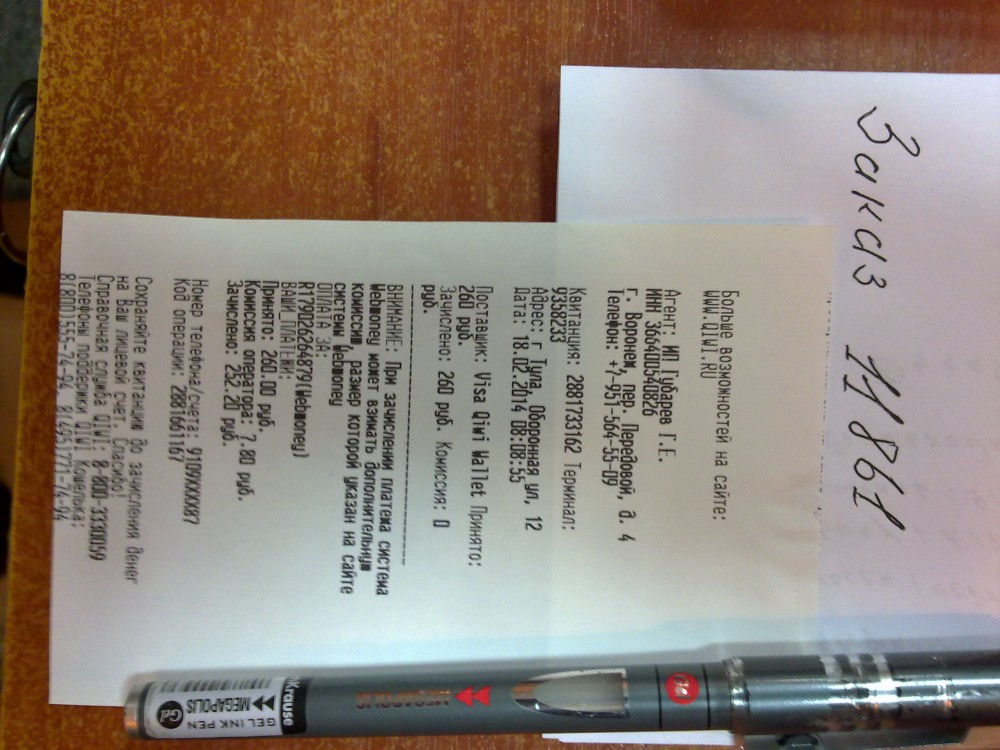 Заказ 11861
Больше возможностей на сайте:
WWW.QIWI.RU
Агент: ИП Губарев Г.Е.
ИНН 366400540826
г. Воронеж, пер. Передовой, д. 4
Телефон: +7-951-564-55-09
Квитанция: 2881733162 Терминал:
9358233
Адрес: г Тула, Оборонная ул, 12
Дата: 18.02.2014 08:08:55
Поставщик: Visa Qiwi Wallet Принято:
260 руб.
Зачислено: 260 руб. Комиссия: 0
руб.
ВНИМАНИЕ: При зачислении платежа система
Webmoney может взимать дополнительную
комиссию, размер которой указан на сайте
системы Webmoney
ОПЛАТА ЗА:
ВАШИ ПЛАТЕЖИ:
R179026264879(Webmoney)
Принято: 260.00 руб.
Комиссия оператора: 7.80 руб.
Зачислено: 252.20 руб.
Номер телефона/счета: 9109XXXX87
Код операции: 2881661167
Сохраняйте квитанцию до зачисления денег
на Ваш лицевой счет. Спасибо!
Справочная служба QIWI: 8-800-3330059
Телефоны поддержки QIWI Кошелька:
8(800)555-74-94 8(495)771-74-94
Krause
MEGAPOLIS
GEL INK PEN
Gel
MEGAPOLIS
Gel